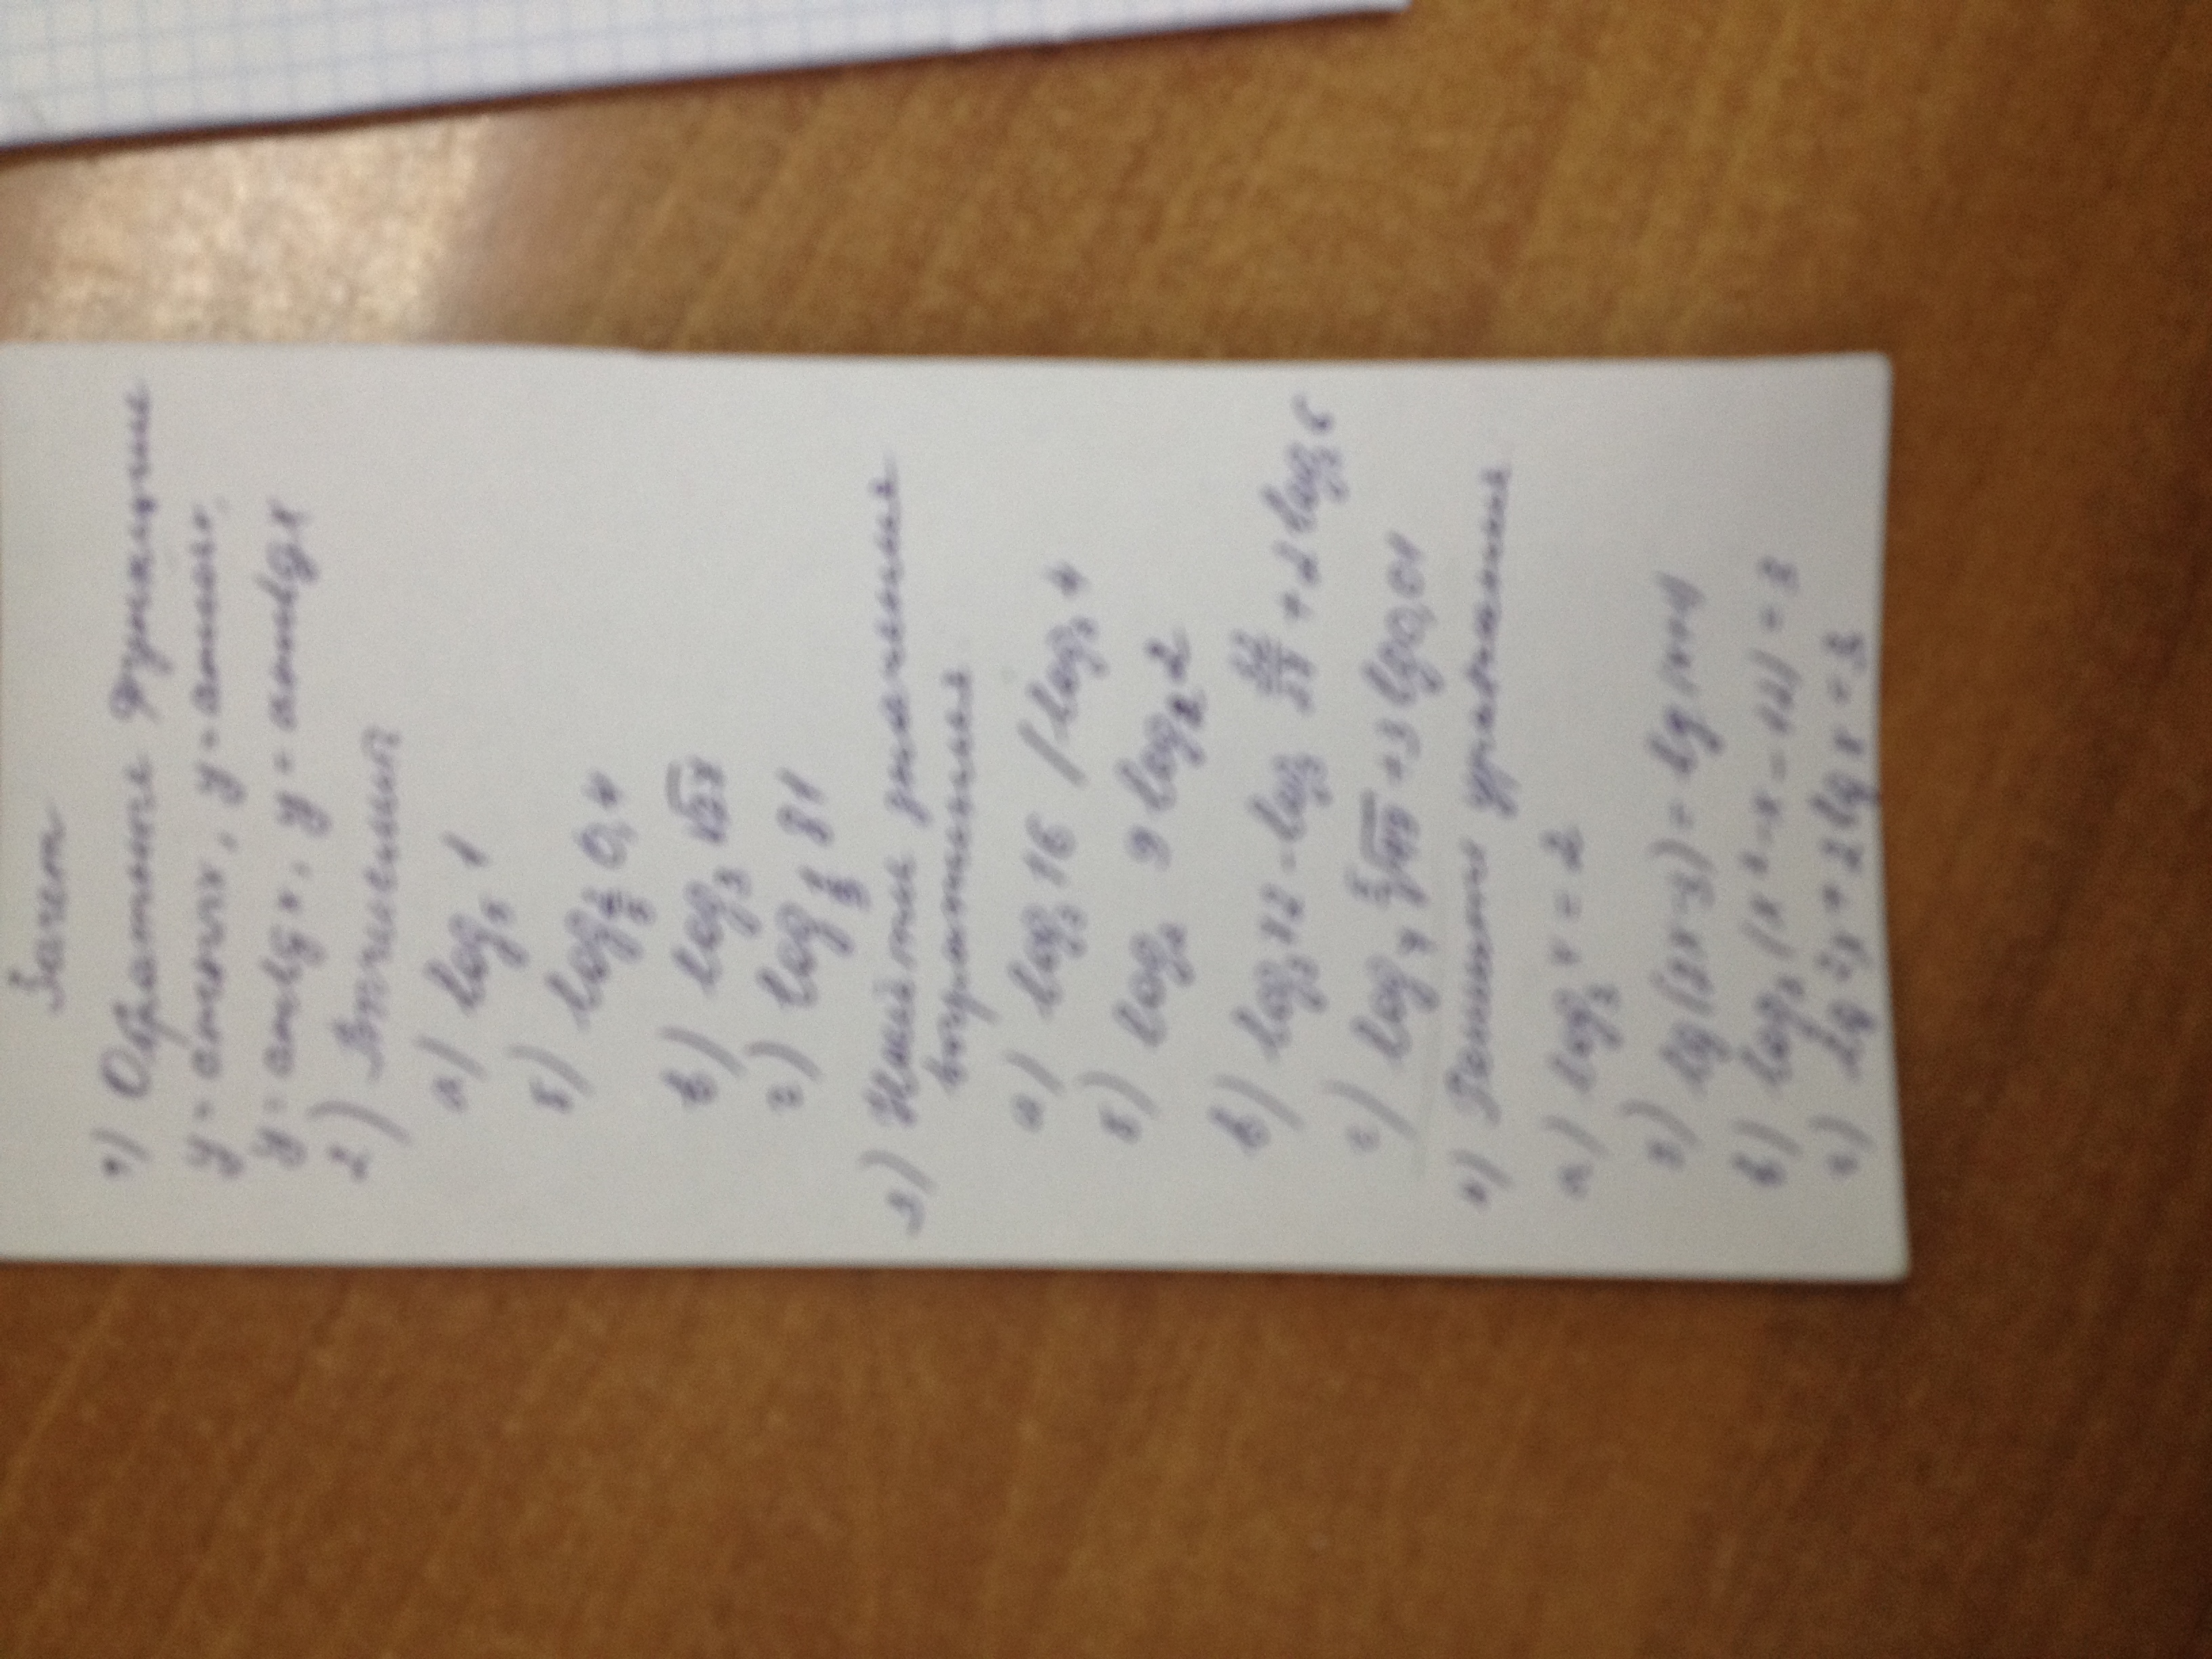 Зачет
1) Обратные функции
y = arcsinx, y = arccosx,
y = arctgx, y = arcctgx
2) Вычислить
а) log₅ 1
б) 0,4
в) log₃ √27
г) log 1/3 81
3) Найти значение
выражения
а) log₃ 16 / log₃ 4
б) 9 2
в) log₃ 12 - log₃ + 2 log₃ 6
г) log₇ ⁵√49 + 3 lg 0,01
4) Решить уравнения
а) log₃ x = 2
б) lg (2x-3) = lg (x+1)
в) (x² - x - 12) = 3
г) lg²x + 2 lg x = 3